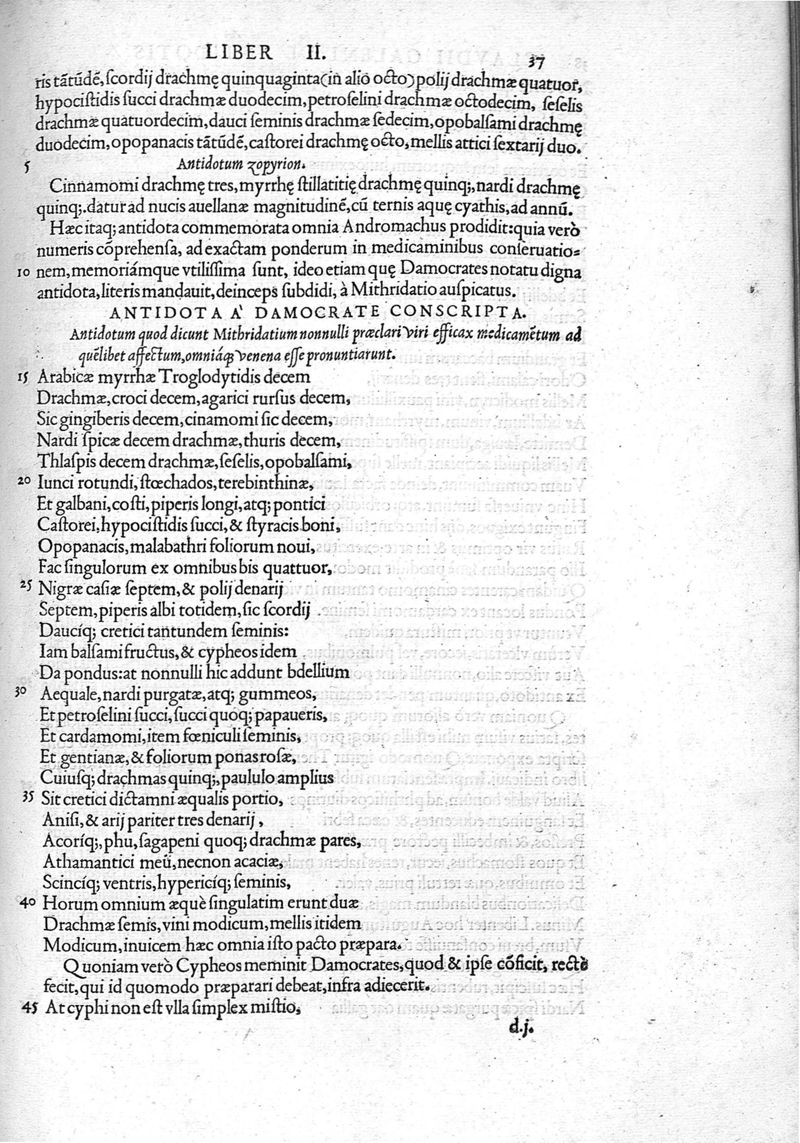 LIBER II. 37
ris tãtũdẽ, ſcordij drachmę quinquaginta (in alio octo) polij drachmæ quatuor,
hypociſtidis ſucci drachmæ duodecim, petroſelini drachmæ octodecim, ſeſelis
drachmæ quatuordecim, dauci ſeminis drachmæ ſedecim, opobalſami drachmę
duodecim, opopanacis tãtũdẽ, caſtorei drachmę octo, mellis attici ſextarij duo.
5 Antidotum zopyrion.
Cinnamomi drachmę tres, myrrhę ſtillatitię drachmę quinq;, nardi drachmę
quinq;. datur ad nucis auellanæ magnitudinẽ, cũ ternis aquę cyathis, ad annũ.
Hæc itaq; antidota commemorata omnia Andromachus prodidit: quia verò
numeris cõprehenſa, ad exactam ponderum in medicaminibus conſeruatio=
10 nem, memoriámque vtiliſſima ſunt, ideo etiam quę Damocrates notatu digna
antidota, literis mandauit, deinceps ſubdidi, à Mithridatio auſpicatus.
ANTIDOTA A' DAMOCRATE CONSCRIPTA.
Antidotum quod dicunt Mithridatium nonnulli præclari viri efficax medicamẽtum ad
quẽlibet affectum, omniáq; venena eſſe pronuntiarunt.
15 Arabicæ myrrhæ Troglodytidis decem
Drachmæ, croci decem, agarici rurſus decem,
Sic gingiberis decem, cinamomi ſic decem,
Nardi ſpicæ decem drachmæ, thuris decem,
Thlaſpis decem drachmæ, ſeſelis, opobalſami,
20 Iunci rotundi, ſtœchados, terebinthinæ,
Et galbani, coſti, piperis longi, atq; pontici
Caſtorei, hypociſtidis ſucci, & ſtyracis boni,
Opopanacis, malabathri foliorum noui,
Fac ſingulorum ex omnibus bis quattuor,
25 Nigræ caſiæ ſeptem, & polij denarij
Septem, piperis albi totidem, ſic ſcordij
Daucíq; cretici tantundem ſeminis:
Iam balſami fructus, & cypheos idem
Da pondus: at nonnulli hic addunt bdellium
30 Aequale, nardi purgatæ, atq; gummeos,
Et petroſelini ſucci, ſucci quoq; papaueris,
Et cardamomi, item fœniculi ſeminis,
Et gentianæ, & foliorum ponas roſæ,
Cuiuſq; drachmas quinq;, paululo amplius
35 Sit cretici dictamni æqualis portio,
Aniſi, & arij pariter tres denarij,
Acoríq;, phu, ſagapeni quoq; drachmæ pares,
Athamantici meũ, necnon acaciæ,
Scincíq; ventris, hypericíq; ſeminis,
40 Horum omnium æquè ſingulatim erunt duæ
Drachmæ ſemis, vini modicum, mellis itidem
Modicum, inuicem hæc omnia iſto pacto præpara.
Quoniam verò Cypheos meminit Damocrates, quod & ipſe cõficit, rectè
fecit, qui id quomodo præparari debeat, infra adiecerit.
45 At cyphi non eſt vlla ſimplex miſtio,
d.j.